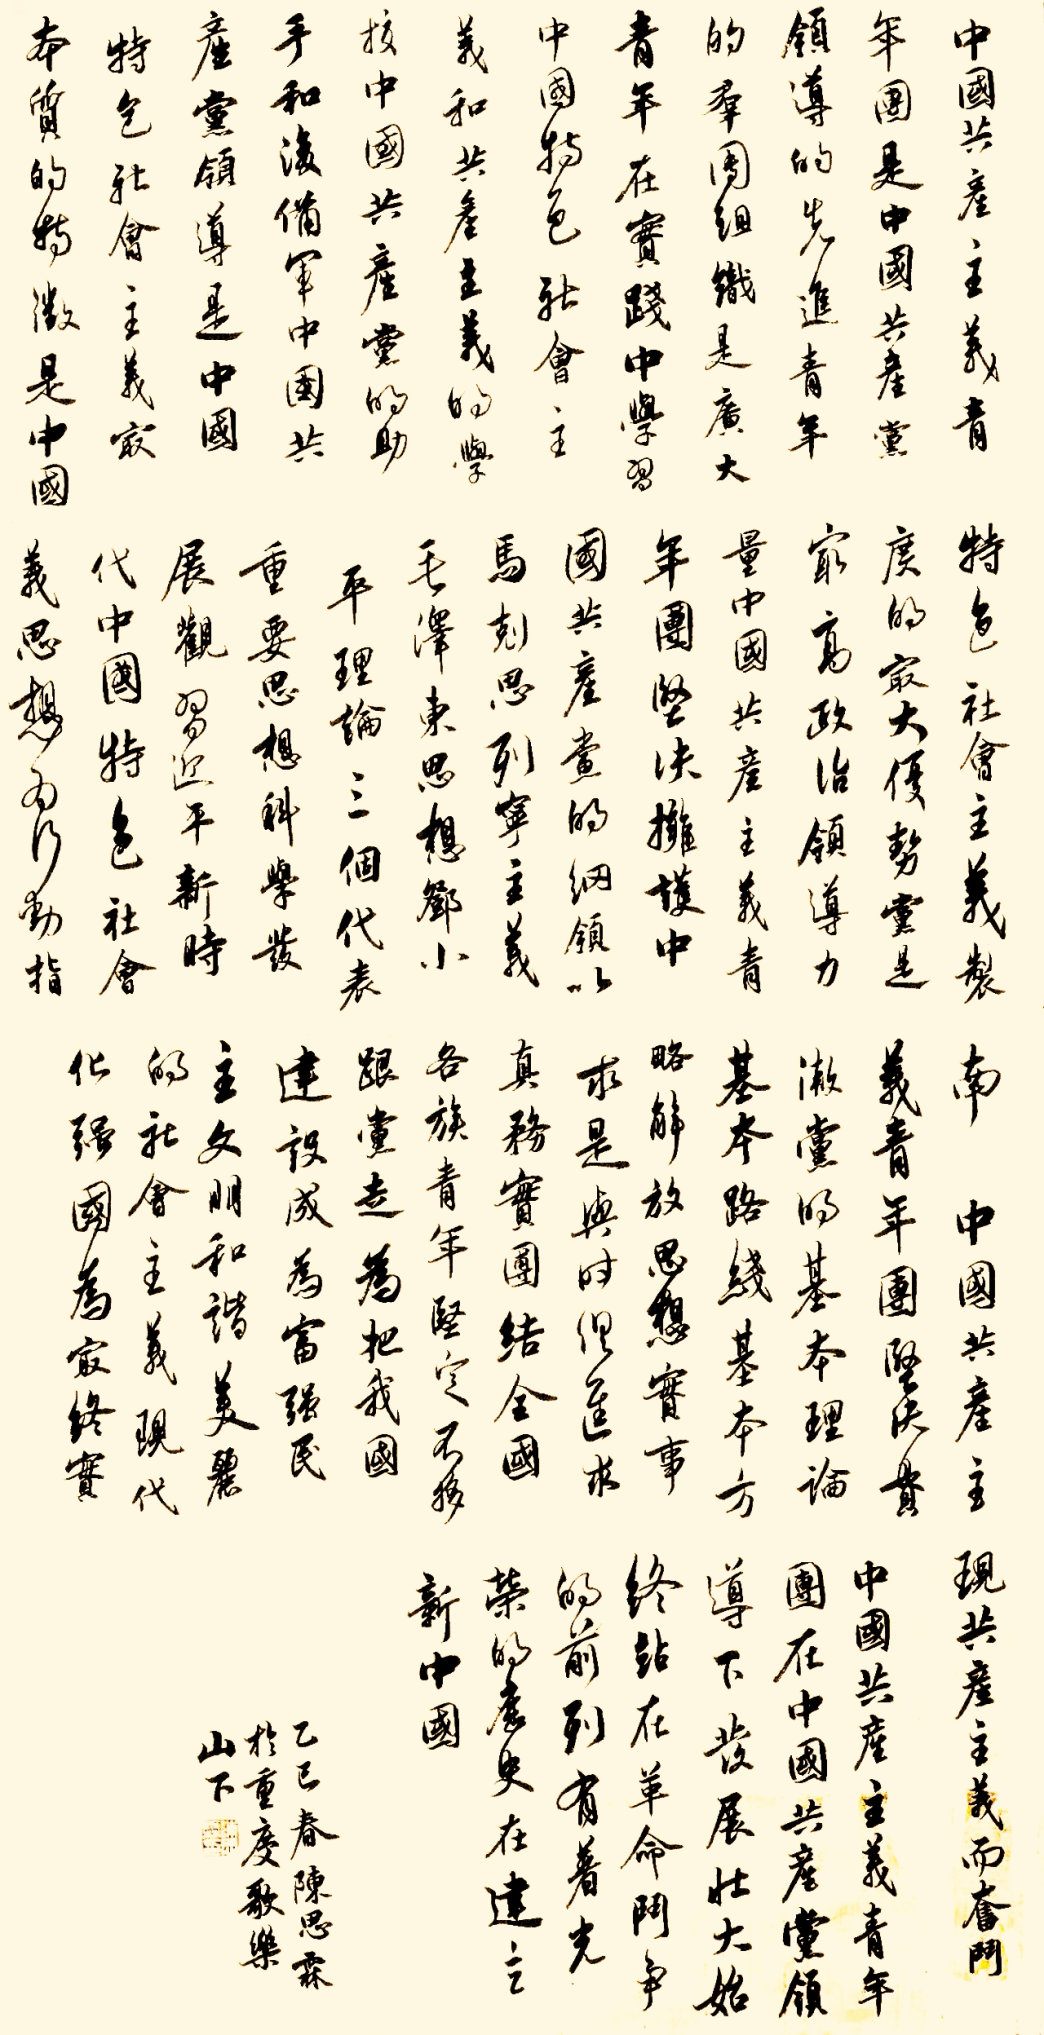 中國共產主義青
年團是中國共產黨
領導的先進青年
的群團組織是廣大
青年在實踐中學習
中國特色社會主
義和共產主義的學
校中國共產黨的助
手和後備軍中國共
產黨領導是中國
特色社會主義最
本質的特徵是中國
特色社會主義製
度的最大優勢黨是
最高政治領導力
量中國共產主義青
年團堅決擁護中
國共產黨的綱領以
馬克思列寧主義
毛澤東思想鄧小
平理論三個代表
重要思想科學發
展觀習近平新時
代中國特色社會
義思想為行動指
南 中國共產主
義青年團堅決貫
澈黨的基本理論
基本路綫基本方
略解放思想實事
求是與時俱進求
真務實團結全國
各族青年堅定不移
跟黨走為把我國
建設成為富强民
主文明和諧美麗
的社會主義現代
化强國為最終實
現共產主義而奮鬥
中國共產主義青年
團在中國共產黨領
導下發展壯大始
終站在革命鬥争
的前列有著光
榮的歷史在建立
新中國
乙巳春陳思霖
於重慶歌樂
山下